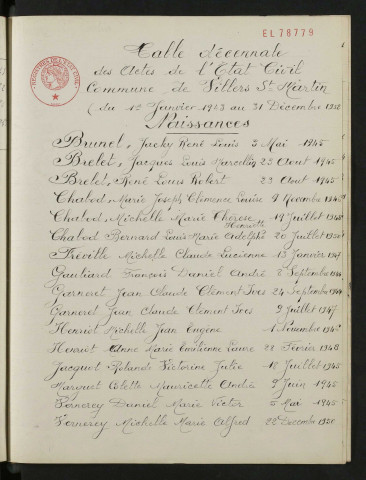 EL 78779
Table Décennale
des Actes de l'Etat Civil
Commune de Villers St Martin
(du 1er Janvier 1943 au 31 Décembre 1952
Naissances
Brunel, Jacky René Louis 3 Mai 1945
Brelet, Jacques Louis Marcellin 23 Aout 1945
Brelet, René Louis Robert 23 Aout 1945
Chabod, Marie Joseph Clémence Louise 9 Novembre
Chabod, Michelle Marie Thérèse Henriette 19 Juillet
Chabod Bernard Louis Marie Adolphe 20 Juillet
Fréville Michelle Claude Lucienne 13 Janvier
Gauliard François Daniel André 2 Septembre
Garneret Jean Claude Clément Yves 24 Septembre
Garneret Jean Claude Clément Yves 9 Juillet 1947
Henriot Michelle Jean Eugène 1 Novembre
Henriot Anne Marie Emilienne 28 Février 1948
Jacquot Rolande Victorine Julie 18 Juillet 1945
Marguet Colette Mauricette Andrée 9 Juin 1945
Vernerey Daniel Marie Victor 5 Mai 1945
Vernerey Michelle Marie Alfred 22 Decembre 1950